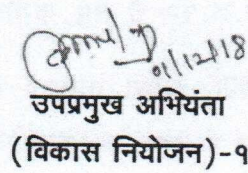 01/12/18
उपप्रमुख अभियंता
(विकास नियोजन)-१